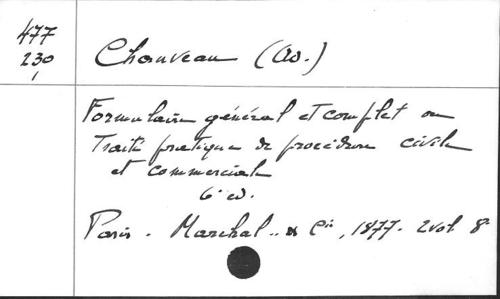 477
230
1
Chauveau (Ad.)
Formulaire général et complet ou
Traité pratique de procédure civile
et commerciale
6e ed.
Paris - Marchal .. & Cie, 1877 - 2 vol 8°